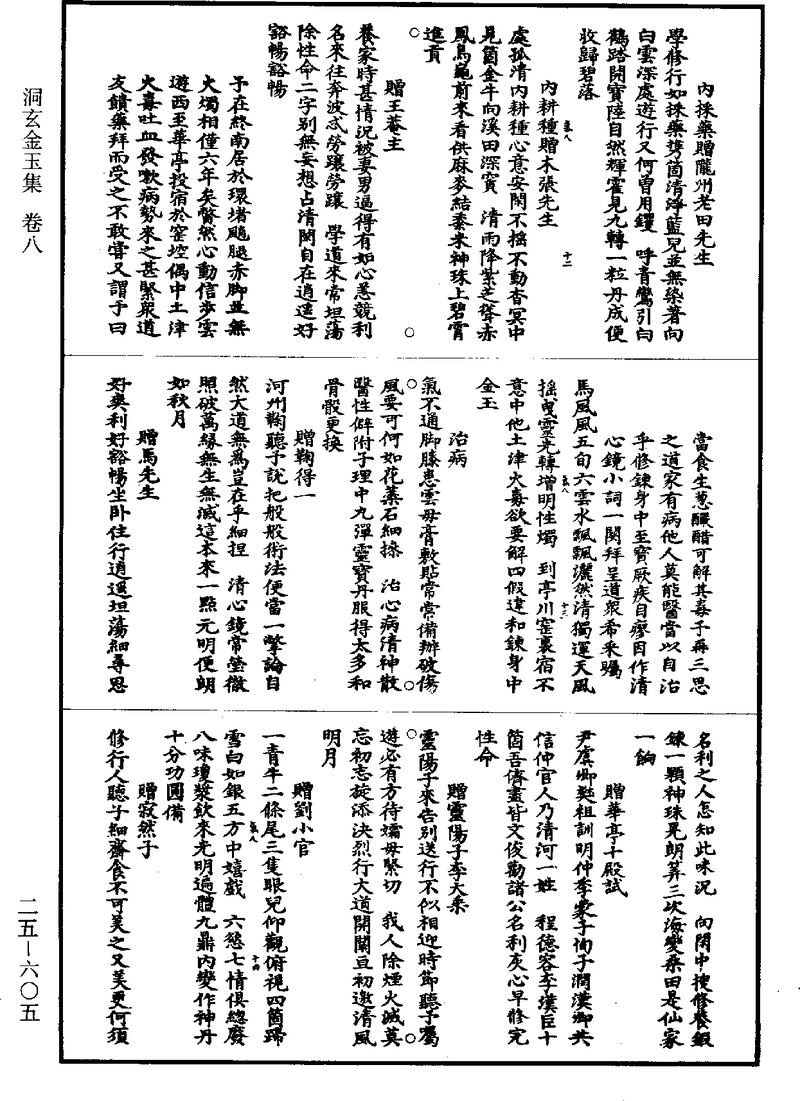 洞玄金玉集 卷八
內採藥贈隴州老田先生
學修行如採藥雙箇清淨藍兒並無染著向
白雲深處遊行又何曾用钁 呼青鸞引白
鶴踏開寶陸自然輝霍見九轉一粒丹成便
收歸碧落
內耕種贈木張先生
處孤清內耕種心意安閑不搖不動杳冥中
見箇金牛向溪田深實 清雨降紫芝聳赤
鳳烏龜前來看供麻麥結黍米神珠上碧霄
進貢
贈王菴主
養家時甚情況被妻男逼得有如心恙競利
名來往奔波忒勞攘勞攘 學道來常坦蕩
除性命二字別無妄想占清閑自在逍遙好
豁暢豁暢
予在終南居於環堵颩腿赤脚並無
火燭相僅六年矣瞥然心動信步雲
遊西至華亭投宿於窑埪偶中土津
火毒吐血發嗽病勢來之甚緊衆道
友饋藥拜而受之不敢嘗又謂予曰
當食生葱釅醋可解其毒予再三思
之道家有病他人莫能醫當以自治
乎修鍊身中至寶厥疾自瘳因作清
心鏡小詞一闋拜呈道衆希采矚
馬風風五旬六雲水飄飄灑然清獨運天風
搖曳靈光轉增明性燭 到亭川窑裏宿不
意中他土津火毒欲要解四假違和鍊身中
金玉
治病
氣不通脚膝患雲母膏敷貼常常備辦破傷
風要可何如花蘂石細摻 治心病清神散
醫性僻附子理中九彈靈寶丹服得太多和
骨骰更換
贈鞠得一
河州鞠聽予說把般般術法便當一擎論自
然大道無爲豈在乎細捏 清心鏡常瑩徹
照破萬緣無生無滅這本來一點元明便朗
如秋月
贈馬先生
好爽利好豁暢坐卧住行逍遥坦蕩細尋思
名利之人怎知此味況 向閑中搜修養鍜
鍊一顆神珠晃朗筭三次海變桑田是仙家
一餉
贈華亭十殿試
尹虞卿樊祖訓明仲李蒙子恂子澗漢卿共
信仲官人乃清河一姓 程德容李漢臣十
箇吾儕盡皆文俊勸諸公名利灰心早修完
性命
贈靈陽子李大乘
靈陽子來告别送行不似相迎時節聽予囑
遊必有方待孀母緊切 我人除煙火滅莫
忘初忘掟添決烈行大道開闡亘初邀清風
明月
贈劉小官
一青牛二條尾三隻眼兒仰觀俯視四箇蹄
雪白如銀五方中嬉戲 六慾七情俱緫廢
八味瓊漿飲來光明遍體九鼎內變作神丹
十分功圓備
贈寂然子
修行人聽子細齋食不可美之又美更何須
二五—六〇五